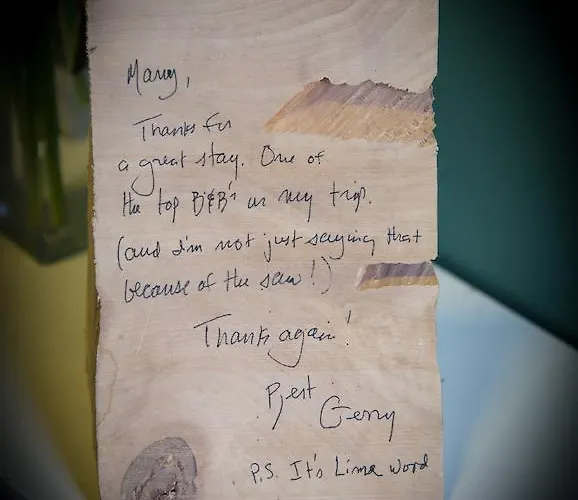 Mary,
Thanks for
a great stay. One of
the top B&B's on my trip.
(and I'm not just saying that
because of the saw!)
Thanks again!
Best
Gerry
P.S. It's Lime wood